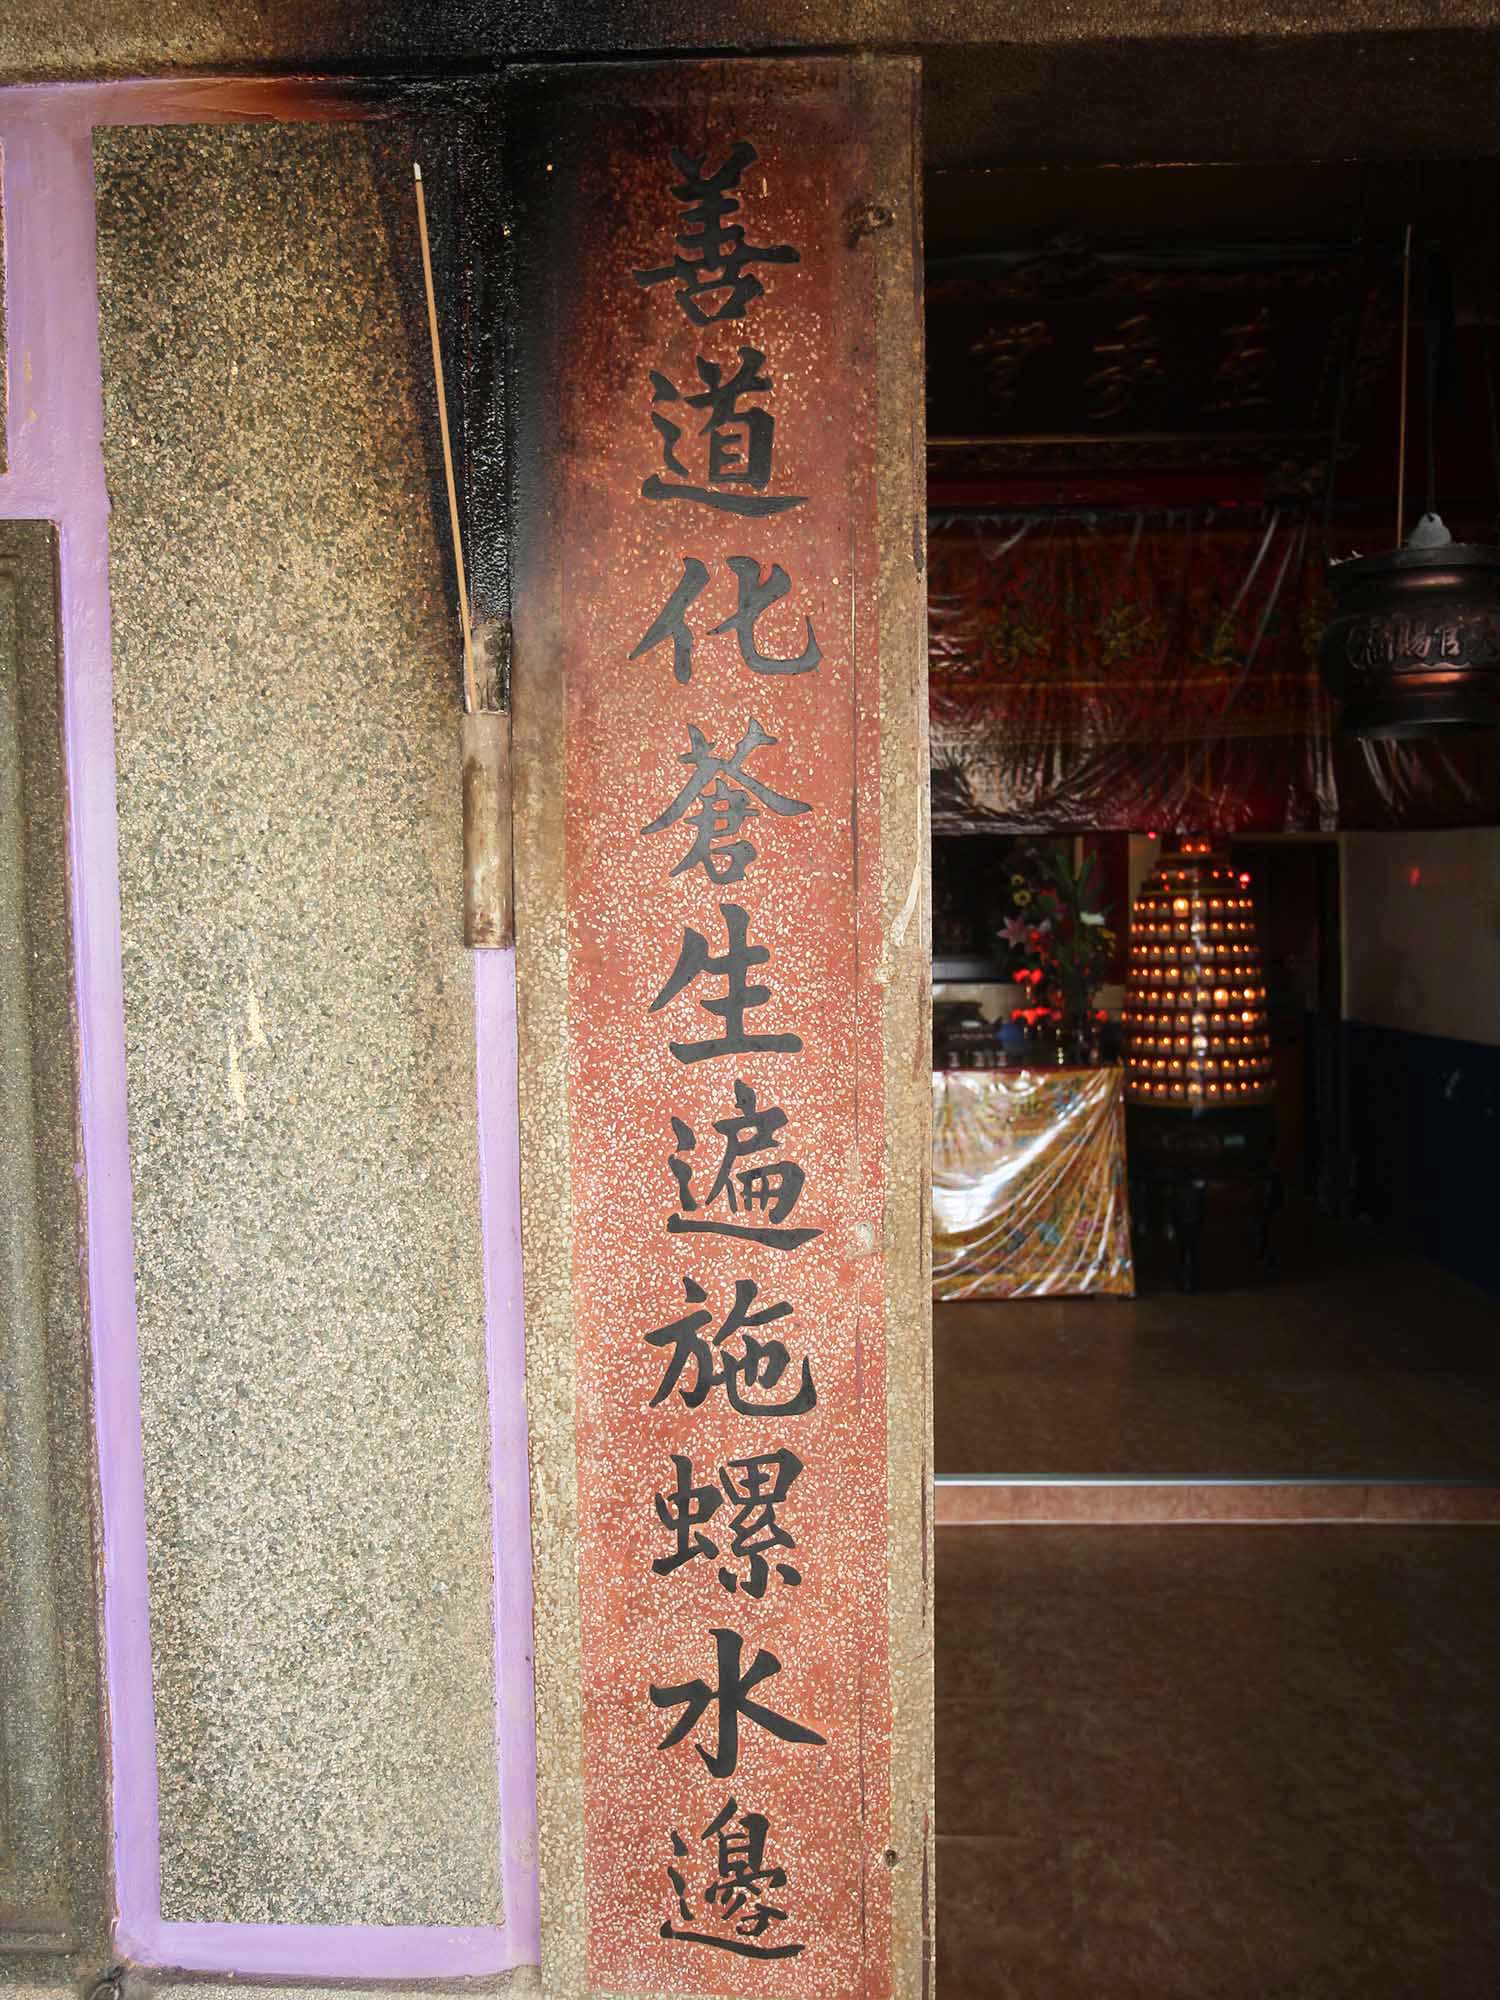 善道化蒼生遍施螺水邊
官賜